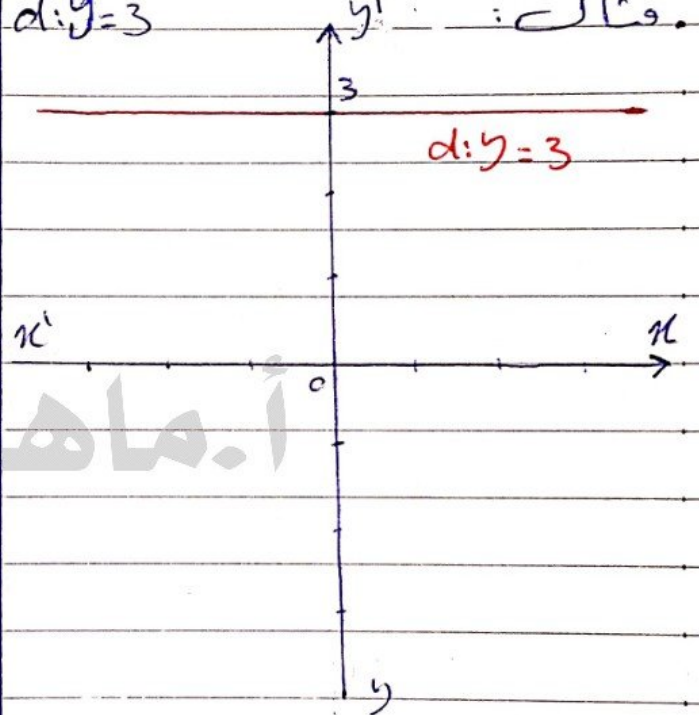 مثال : d:y=3
y'
3
d:y=3
x' x
o
أ.ماهـ
y